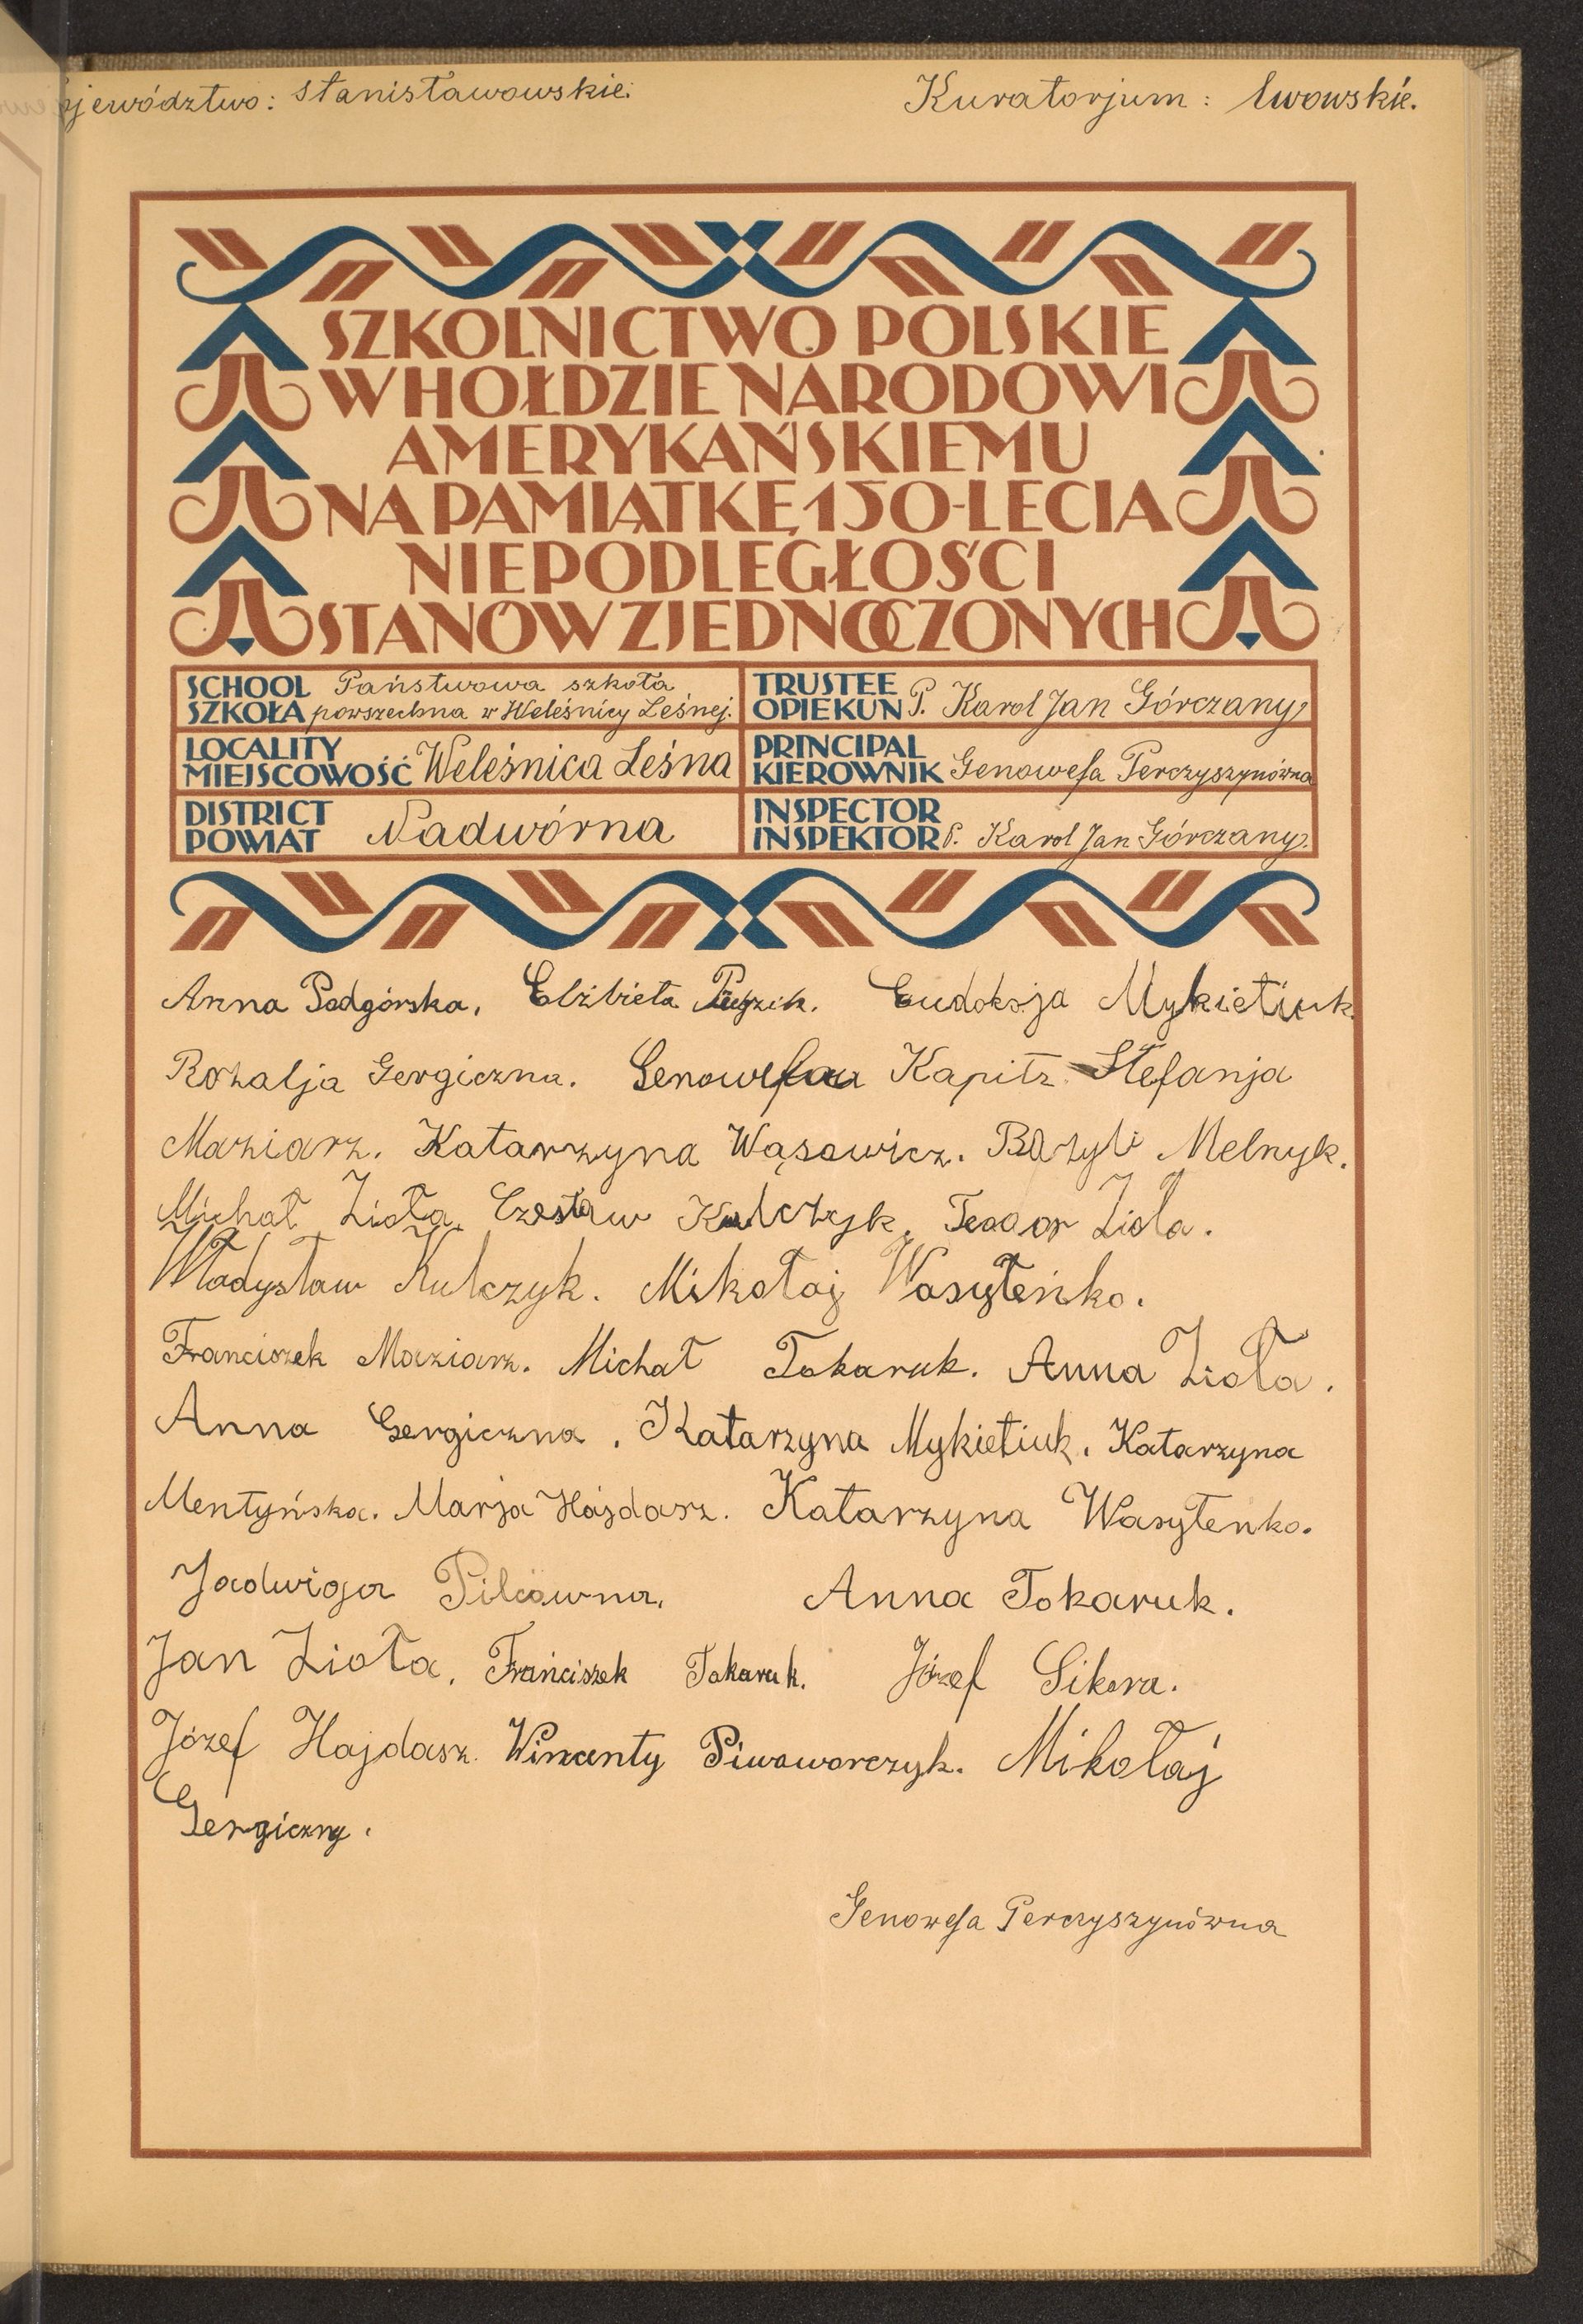 ojewództwo: stanisławowskie.
Kuratorjum: lwowskie.
SZKOLNICTWO POLSKIE
W HOŁDZIE NARODOWI
AMERYKAŃSKIEMU
NA PAMIĄTKĘ 150-LECIA
NIEPODLEGŁOŚCI
STANÓW ZJEDNOCZONYCH
SCHOOL Państwowa szkoła
SZKOŁA powszechna w Weleśnicy Leśnej.
TRUSTEE
OPIEKUN P. Karol Jan Górczany
LOCALITY
MIEJSCOWOŚĆ Weleśnica Leśna
PRINCIPAL
KIEROWNIK Genowefa Perczyszynówna
DISTRICT
POWIAT Nadwórna
INSPECTOR
INSPEKTOR P. Karol Jan Górczany.
Anna Podgórska. Elżbieta Eudoksja Mykietiuk.
Rozalja Gergiczna. Genowefa Kapitz. Stefanja
Maziarz. Katarzyna Wąsowicz. Bazyli Melnyk.
Michał Zioła. Czesław Kulczyk. Teodor Zioła.
Władysław Kulczyk. Mikołaj Wasyłeńko.
Franciszek Maziarz. Michał Tokaruk. Anna Zioła.
Anna Gergiczna. Katarzyna Mykietiuk. Katarzyna
Mentyńska. Marja Hajdasz. Katarzyna Wasyłenko.
Jadwiga Pilcówna. Anna Tokaruk.
Jan Zioła. Franciszek Tokaruk. Józef Sikora.
Józef Hajdasz. Wincenty Piwowarczyk. Mikołaj
Gergiczny.
Genowefa Perczyszynówna